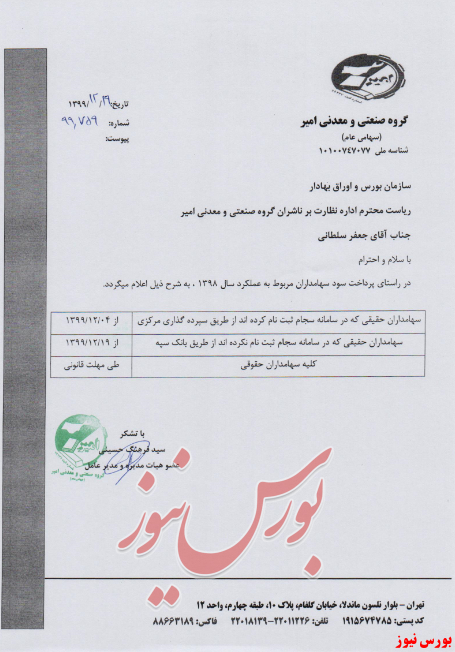 امیر
گروه صنعتی و معدنی امیر
(سهامی عام)
شناسه ملی ۱۰۱۰۰۷۴۷۰۷۷
تاریخ: ۱۳۹۹/۱۲/۱۹
شماره: ۹۹٫۷۵۹
پیوست:
سازمان بورس و اوراق بهادار
ریاست محترم اداره نظارت بر ناشران گروه صنعتی و معدنی امیر
جناب آقای جعفر سلطانی
با سلام و احترام
در راستای پرداخت سود سهامداران مربوط به عملکرد سال ۱۳۹۸ ، به شرح ذیل اعلام میگردد.
سهامداران حقیقی که در سامانه سجام ثبت نام کرده اند از طریق سپرده گذاری مرکزی از ۱۳۹۹/۱۲/۰۴
سهامداران حقیقی که در سامانه سجام ثبت نام نکرده اند از طریق بانک سپه از ۱۳۹۹/۱۲/۱۹
کلیه سهامداران حقوقی طی مهلت قانونی
با تشکر
سید فرهنگ حسینی
عضو هیات مدیره و مدیر عامل
امیر
گروه صنعتی و معدنی امیر
بورس نیوز
تهران – بلوار نلسون ماندلا، خیابان گلفام، پلاک ۱۰، طبقه چهارم، واحد ۱۲
کد پستی: ۱۹۱۵۶۷۴۷۸۵ تلفن: ۲۲۰۱۱۲۲۶-۲۲۰۱۸۱۳۹ فاکس: ۸۸۶۶۳۱۸۹
بورس نیوز